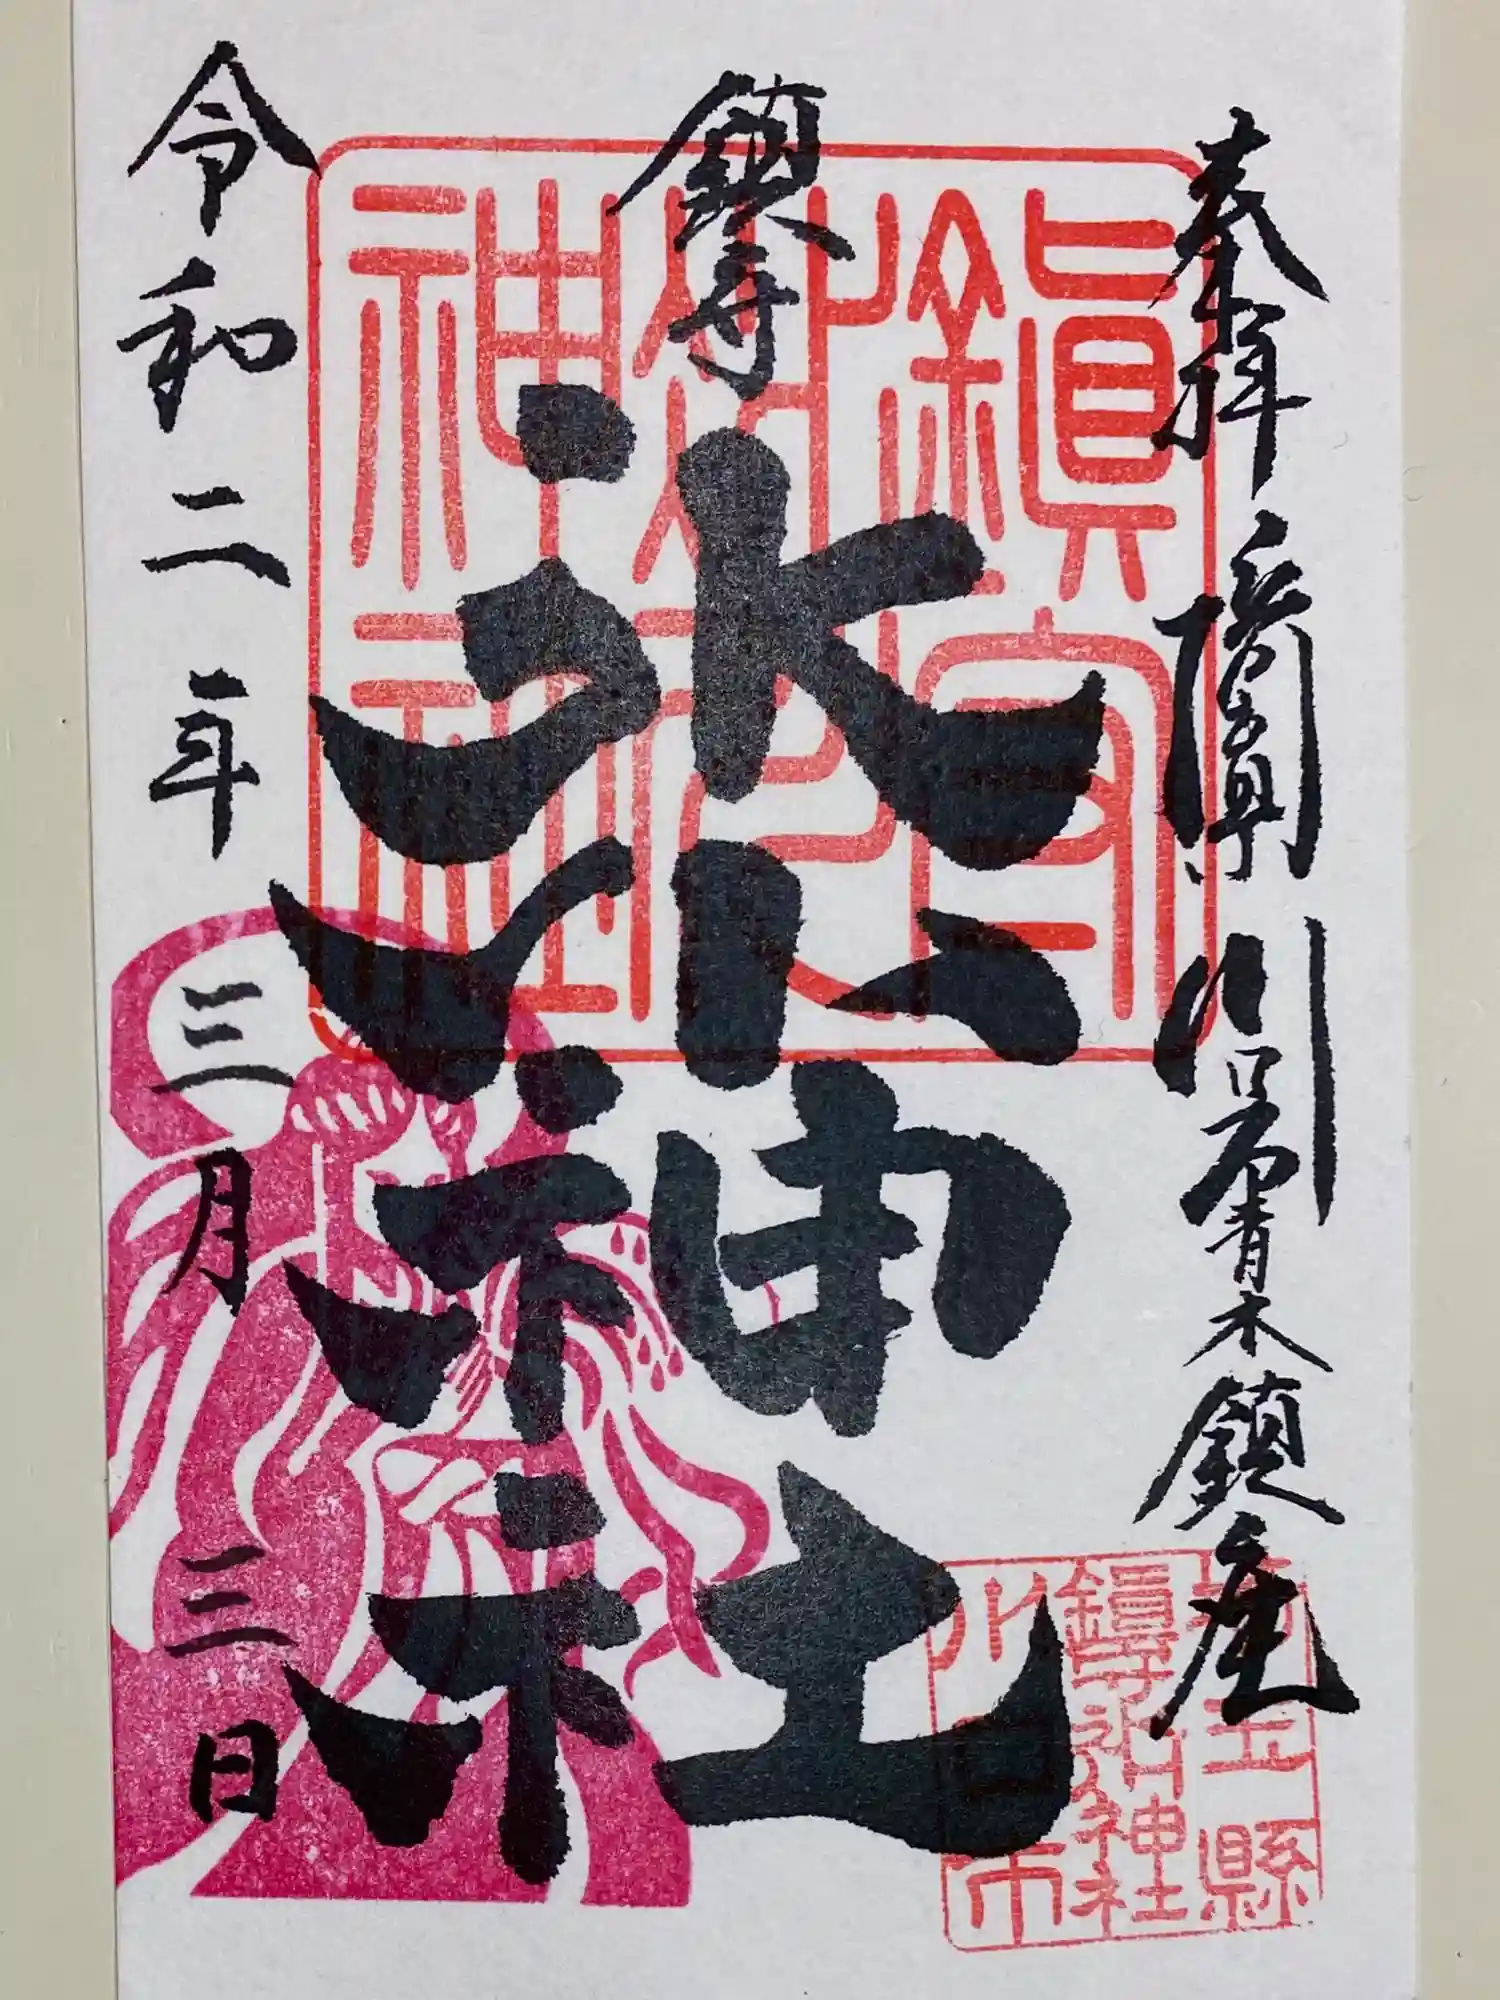 奉拝 川口市青木鎮座
鎮守
氷川神社
令和二年三月三日
鎭守
氷川
神社
埼玉縣
鎭守氷川神社
川口市